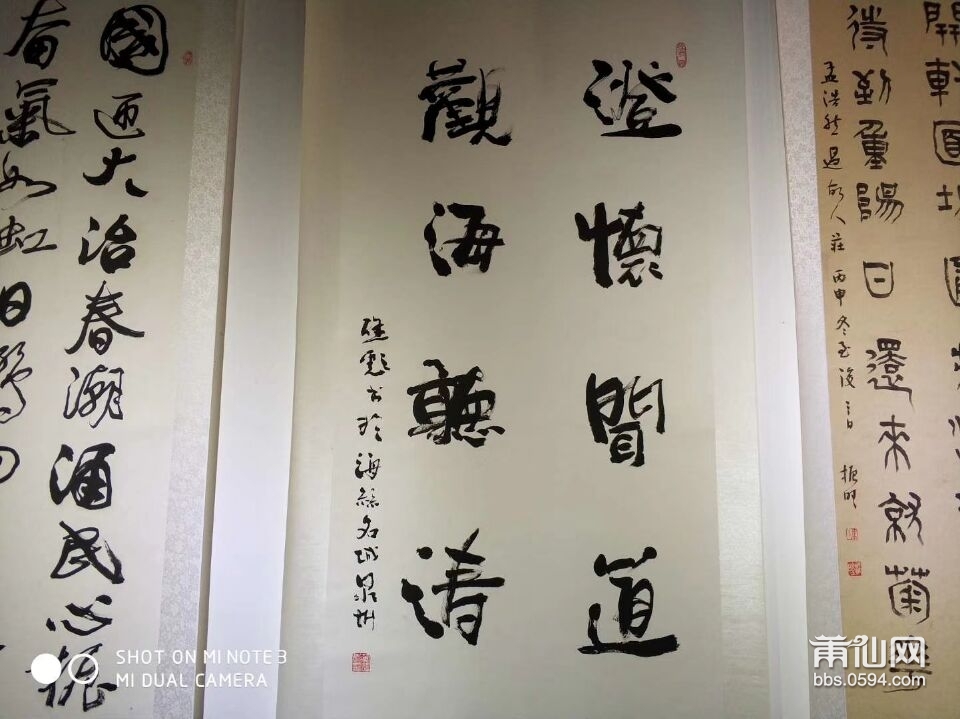 開軒面場圃
待到重陽日還來就菊花
孟浩然過故人莊 丙申冬至後三日 振明
澄懷聞道
觀海聽涛
书於海絲名城泉州
國迎大治春潮涌民心振
奮氣如虹
SHOT ON MI NOTE 3
MI DUAL CAMERA
莆仙网
bbs.0594.com